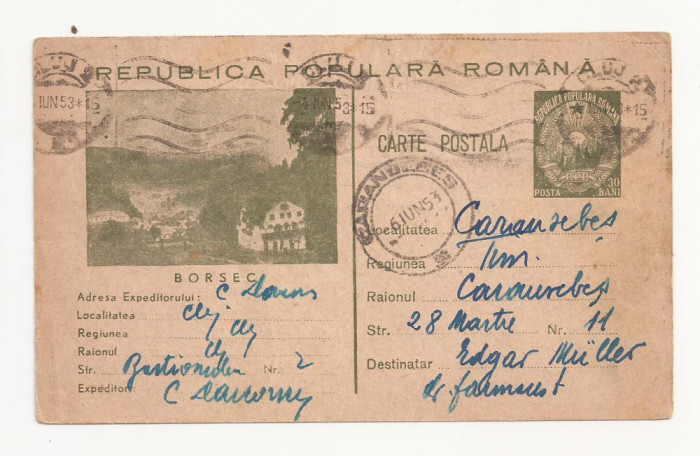 REPUBLICA POPULARĂ ROMÂNĂ
CLUJ
IUN 53 * 15
CARTE POSTALA
REPUBLICA POPULARA ROMÂNĂ
RPR
POSTA 30 BANI
CARANSEBES
6 IUN 53
BORSEC
Adresa Expeditorului: C
Localitatea Cluj
Regiunea Cluj
Raionul Cluj
Str. Nr. 2
Expeditor: C
Localitatea Caransebeș
Regiunea Tim.
Raionul Caransebeș
Str. 28 Martie Nr. 11
Destinatar Edgar Müller
farmacist